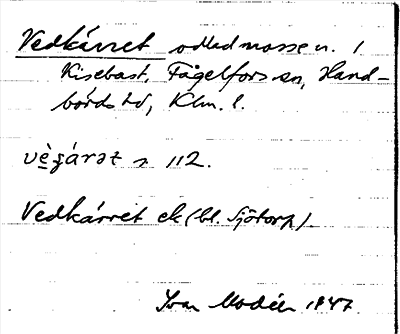 Vedkärret odlad mosse n. /
Kisebast, Fågelfors sn, Hand-
börds hd, Klm. l.
vè̱ʒárət s 112.
Vedkärret ek (bl. Sjötorp).
Ivar Modéer 1947